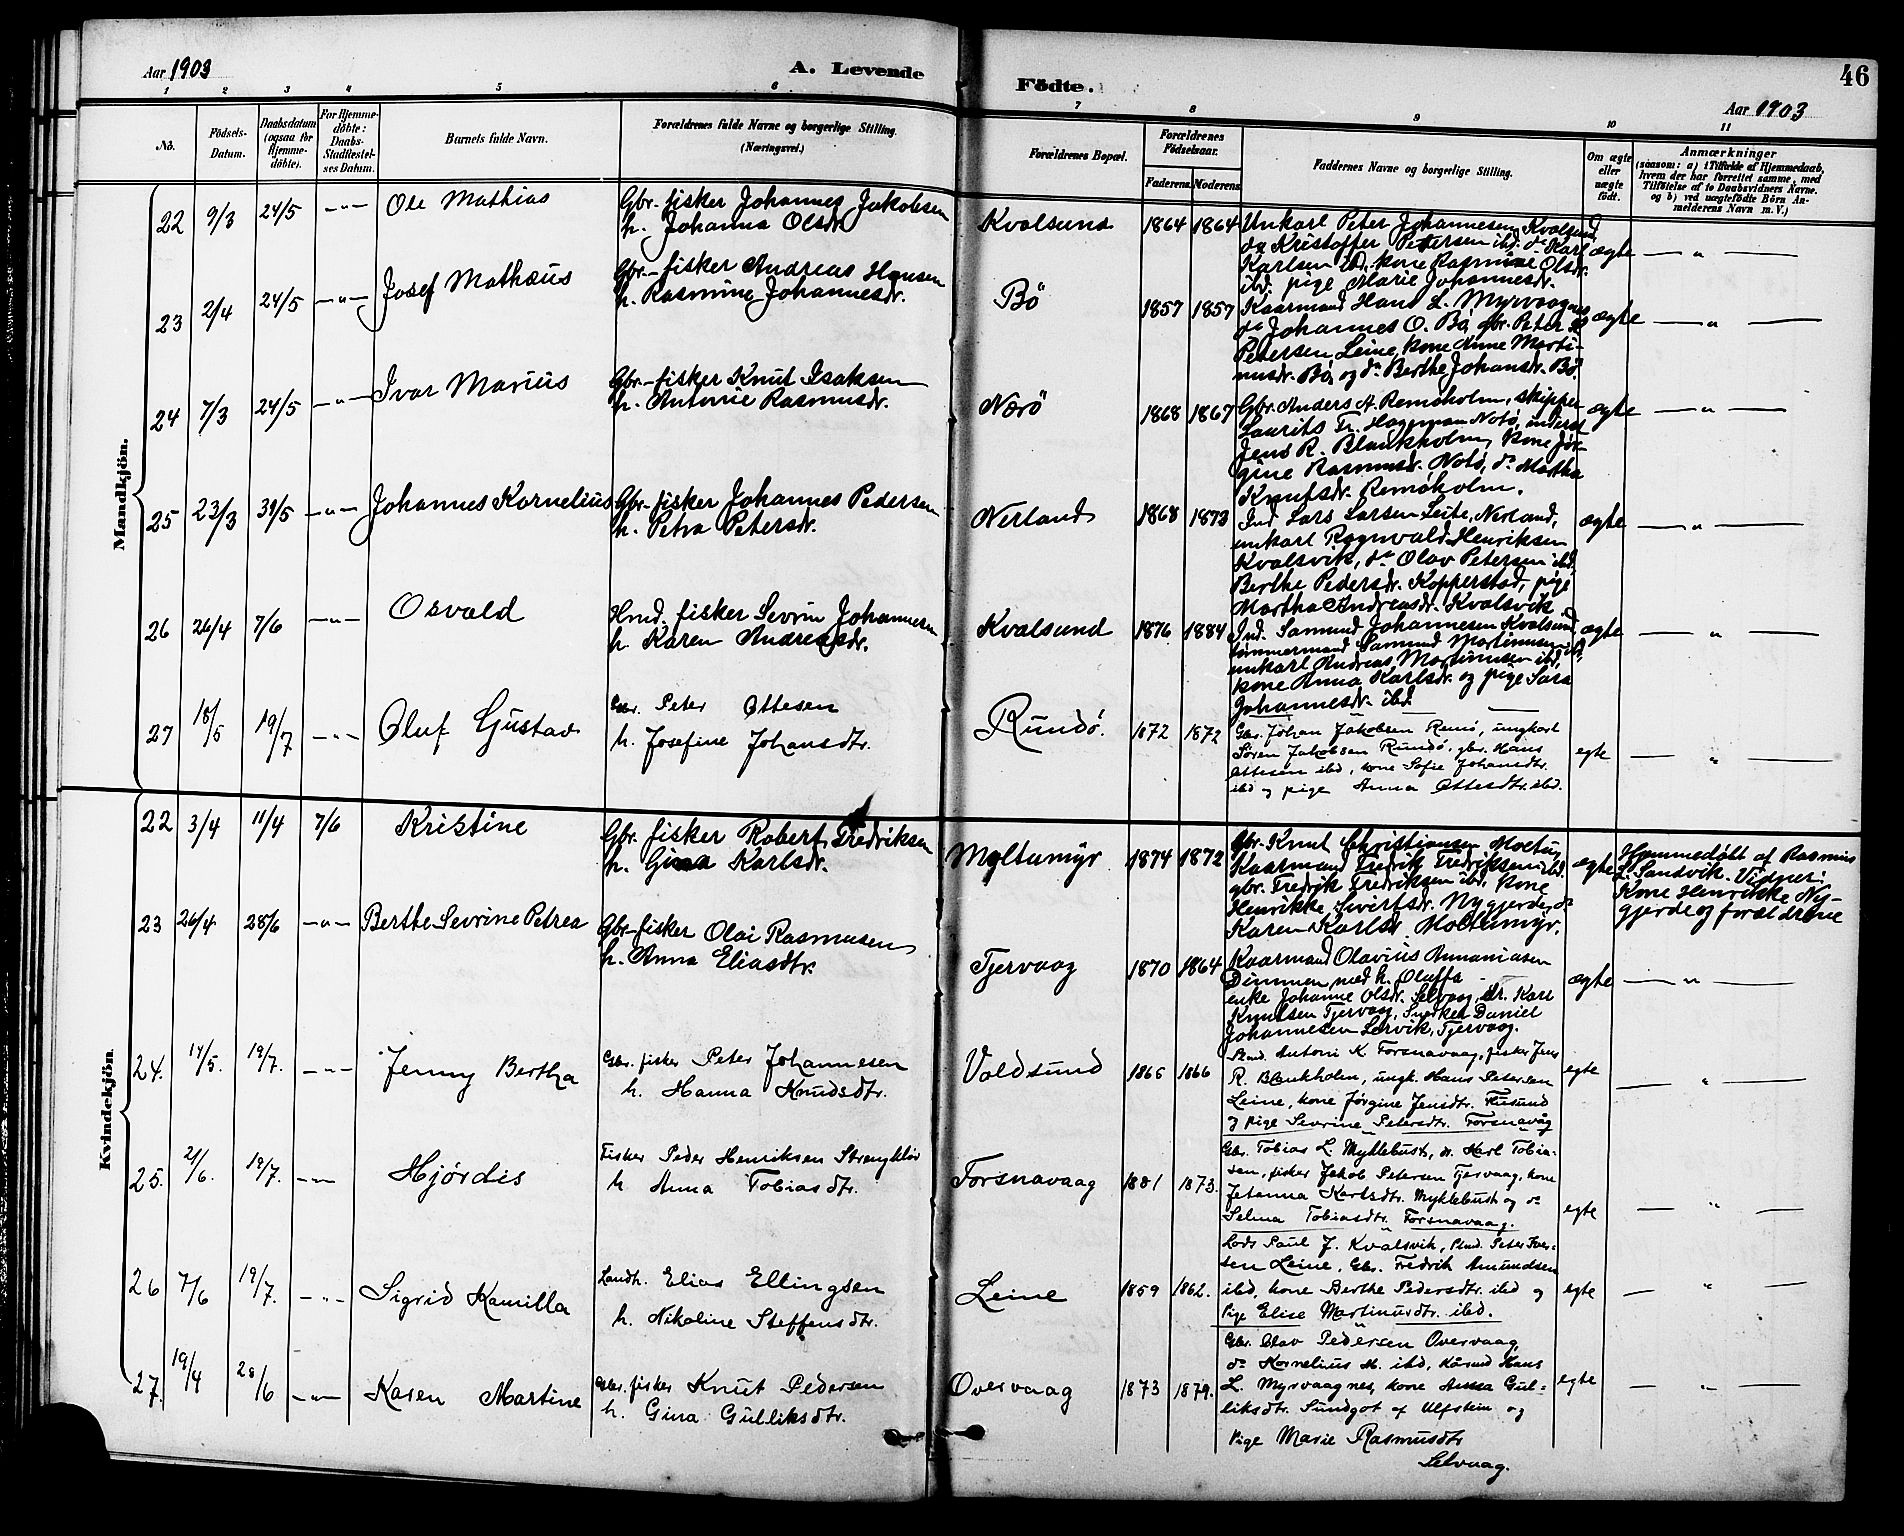 Aar 1903
A. Levende
Födte.
46
Aar 1903
1 2 3 4 5 6 7 8 9 10 11
No.
Födsels-
Datum.
Daabsdatum
(ogsaa for
Hjemme-
döbte).
For Hjemme-
döbte:
Daabs-
Stadfæstel-
ses Datum.
Barnets fulde Navn.
Forældrenes fulde Navne og borgerlige Stilling.
(Næringsvei.)
Forældrenes Bopæl.
Forældrenes
Födselsaar.
Faderens.
Moderens.
Faddernes Navne og borgerlige Stilling.
Om ægte
eller
uægte
født.
Anmærkninger
(saasom: a) i Tilfælde af Hjemmedaab,
hvem der har forrettet samme, med
Tilföielse af to Daabsvidners Navne.
og b) ved uægtefödte Börn An-
melderens Navn m. V.)
Mandkjön.
22 9/3 24/5 —"— Ole Mathias
Gbr. fisker Johannes Jakobsen
h. Johanna Olsdr.
Kvalsund 1864 1864
Unkarl Peter Johannesen Kvalsund,
do Kristoffer Petersen ibd. do Karl
Karlsen ibd. kone Rasmine Olsdr.
ibd. pige Marie Johannesdr.
ægte — " —
23 2/4 24/5 —"— Josef Mathæus
Gbr.-fisker Andreas Hansen
h. Rasmine Johannesdr.
Bö 1857 1857
Kaarmand Hans L. Myrvaagnes
do Johannes O. Bö, gbr. Peter
Petersen Leine, kone Anne Marti-
nusdr. Bö, og do Berthe Johansdr. Bö.
ægte — " —
24 7/3 24/5 —"— Ivar Marius
Gbr.-fisker Knut Isaksen
h. Antonie Rasmusdr.
Nærö 1868 1867
Gbr. Anders A. Remöholm, skipper
Laurits Fr. Notö, inderst
Jens R. Blankholm, kone Jör-
gine Rasmusdr. Notö, do Martha
Knutsdr. Remöholm.
ægte — " —
25 23/3 31/5 —"— Johannes Kornelius
Gbr.-fisker Johannes Pedersen
h. Petra Petersdr.
Nerland 1868 1873
Ind. Lars Larsen Leite, Nerland,
unkarl Ragnvald Henriksen
Kvalsvik, do Olav Petersen ibd,
Berthe Pedersdr. Kopperstad, pige
Martha Andreasdr. Kvalsvik.
ægte — " —
26 26/4 7/6 —"— Osvald
Hmd. fisker Sevrin Johannesen
h. Karen Andreasdr.
Kvalsund 1876 1884
Ind. Samund Johannesen Kvalsund,
tømmermand Samund Martinusen ibd.
unkarl Andreas Martinusen ibd,
kone Anna Karlsdr. og pige Sara
Johannesdr. ibd.
ægte — " —
27 18/5 19/7 —"— Oluf Gustav
Gbr. Peter Ottesen
h. Josefine Johansdtr.
Rundö. 1872 1872
Gbr. Johan Jakobsen Remö, ungkarl
Sören Jakobsen Rundö, gbr. Hans
Ottesen ibd, kone Sofie Johansdtr.
ibd og pige Anna Ottesdtr. ibd.
egte — " —
Kvindekjön.
22 3/4 11/4 7/6 Kristine
Gbr. fisker Robert Fredriksen
h. Gina Karlsdr.
Moltumyr 1874 1872
Gbr. Knut Christiansen Moltu,
Kaarmand Fredrik Fredriksen ibd.
gbr. Fredrik Fredriksen ibd. kone
Henrikke Sivertsdr. Nygjerde, do
Karen Karlsdr. Moltumyr.
ægte
Hjemmedöbt af Rasmus
L. Sandvik. Vidner:
Kone Henrikke Ny-
gjerde og forældrene
23 26/4 28/6 —"— Berthe Sevrine Petrea
Gbr-fisker Olai Rasmusen
h. Anna Eliasdtr.
Tjervaag 1870 1864
Kaarmand Olavius Annaniasen
Dimmen med h. Oluffa
enke Johanne Olsdr. Selvaag, dr. Karl
Knutsen Tjervaag, Snerker Daniel
Johannesen Lervik, Tjervaag.
ægte — " —
24. 17/5. 19/7. —"— Jenny Bertha
Gbr. fisker Peter Johannesen
h. Hanna Knudsdtr.
Voldsund 1865 1866
Antoni K. Forsnavaag, fisker Jens
R. Blankholm, ungk. Hans Petersen
Leine, kone Jörgine Jensdtr.
og pige Sevrine Petersdtr. Forsnavåg
egte — " —
25. 2/6. 19/7. —"— Hjördis
Fisker Peder Henriksen
h. Anna Tobiasdtr.
Forsnavaag 1881 1873.
Gbr. Tobias L. Myklebust, dr. Karl Tobia-
sen, fisker Jakob Petersen Tjervaag, kone
Jetanna Karlsdtr. Myklebust og do
Selina Tobiasdtr. Forsnavaag.
egte — " —
26 7/6 19/7. —"— Sigrid Kamilla
Landh. Elias Ellingsen
h. Nikoline Steffensdtr.
Leine 1859 1862.
Lods Paul J. Kvalsvik, Peter Iver-
sen Leine, Gbr. Fredrik Amundsen
ibid, kone Berthe Pedersdtr. ibd og
Pige Elise Martinusdtr. ibd.
egte — " —
27. 19/4 28/6 —"— Karen Martine
Gbr. fisker Knut Pedersen
h. Gina Gulliksdtr.
Overvaag 1873 1879.
Gbr. Olav Pedersen Overvaag,
do Kornelius M. ibd, kårmd Hans
L. Myrvaagnes, kone Anna Gul-
liksdtr. Sundgot af Ulfstein og
Pige Marie Rasmusdtr
Selvaag.
egte — " —